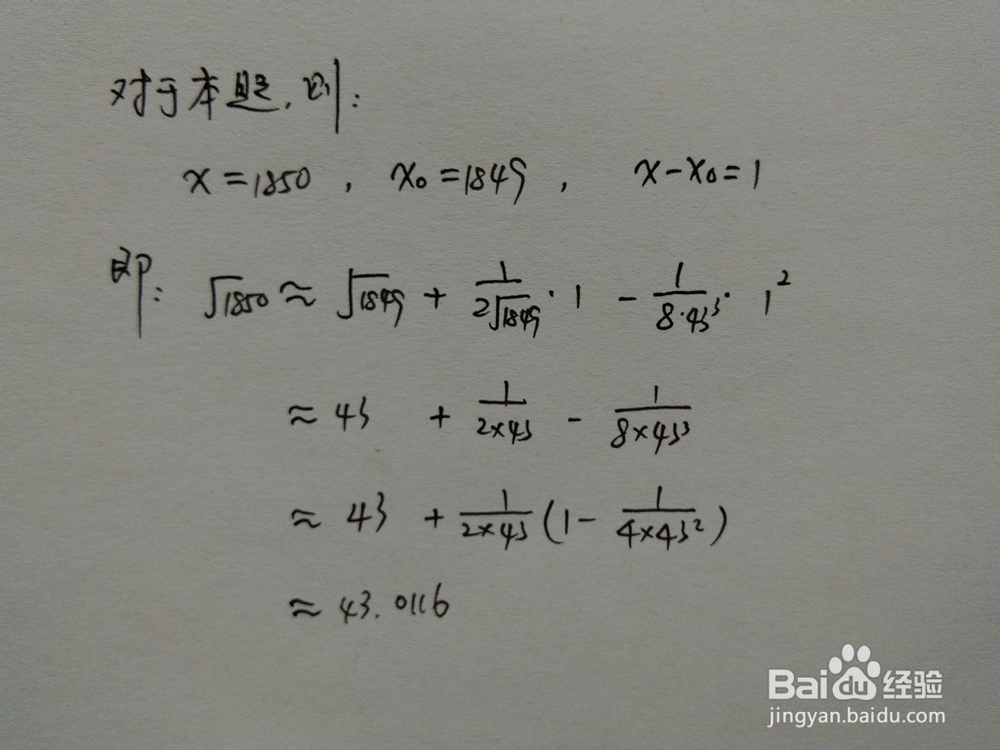 对于本题,则:
x=1850 , x₀=1849 , x-x₀=1
即: √1850 ≈ √1849 + 1/(2√1849)·1 - 1/(8·43³)·1²
≈ 43 + 1/(2×43) - 1/(8×43³)
≈ 43 + 1/(2×43) (1- 1/(4×43²))
≈ 43.0116
Bai du 经验
jingyan.baidu.com